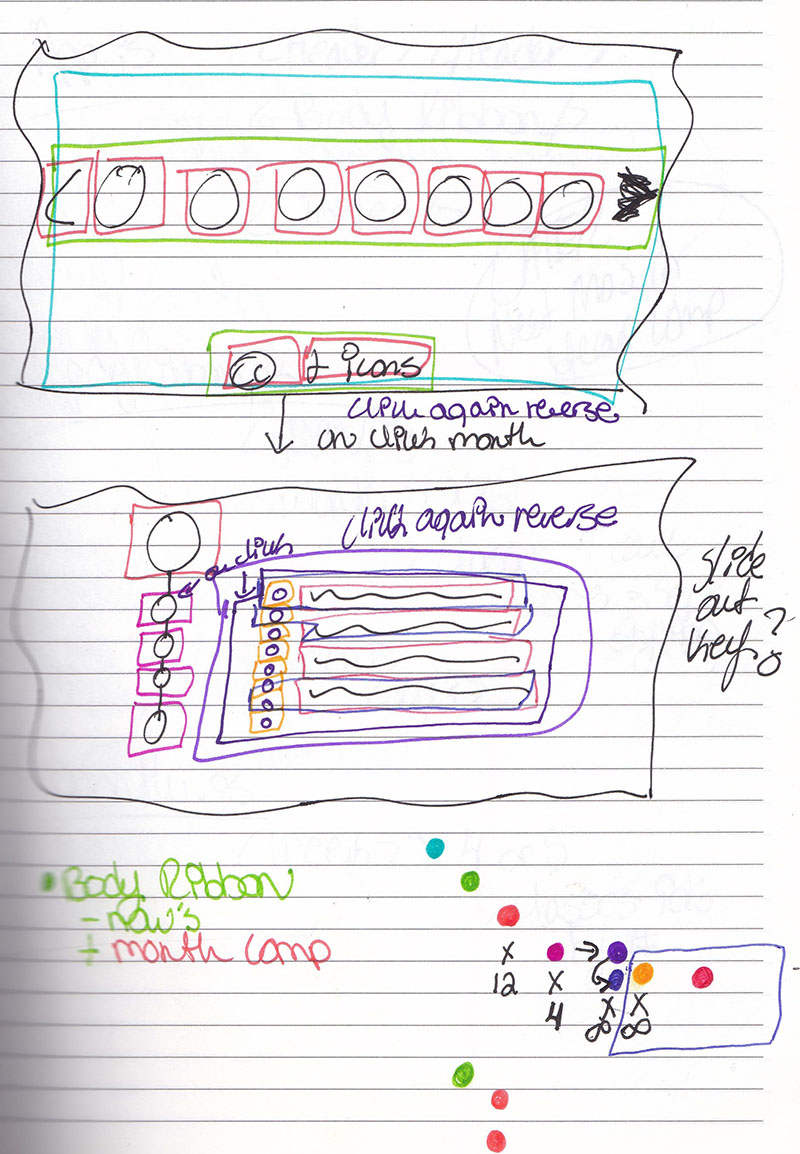 CC + icons
click again reverse
on click month
click again reverse
on click
slide
out
key?
Body Ribbon
- row's
+ month comp
X
12 X
4 X X
∞ ∞